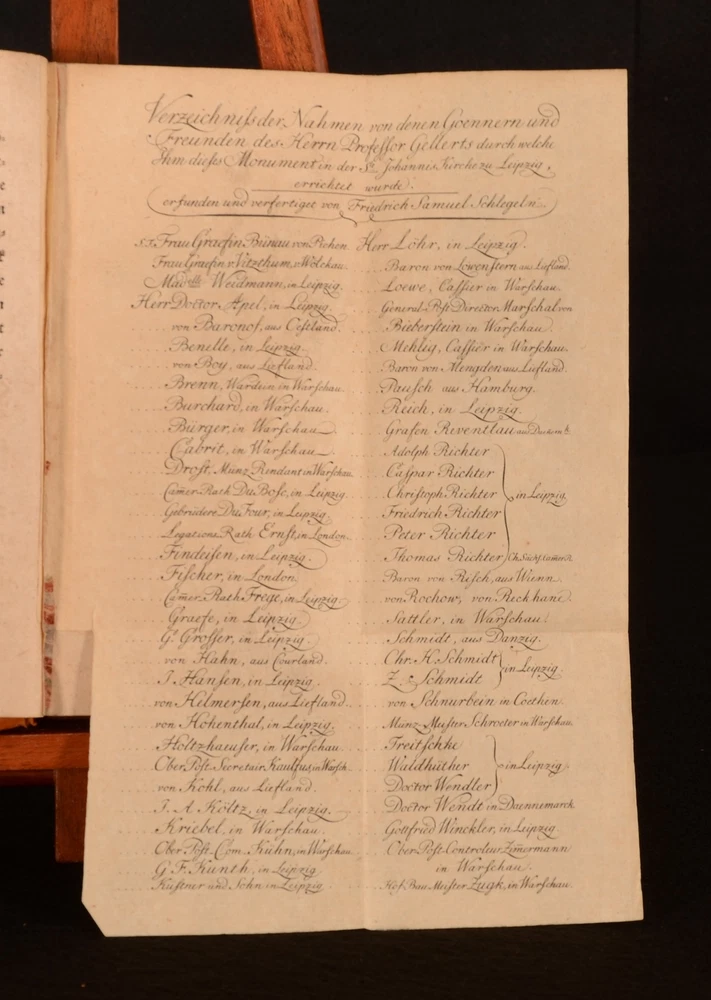 Verzeichniß der Nahmen von denen Goennern und
Freunden des Herrn Professor Gellerts durch welche
Ihm dieses Monument in der St. Johannis Kirche zu Leipzig,
errichtet wurde.
erfunden und verfertiget von Friedrich Samuel Schlegeln.
Frau Graefin Bünau von Püchen
Frau Graefin v. Vitzthum, v. Wölckau.
Madelle Weidmann, in Leipzig.
Herr Doctor Apel, in Leipzig.
von Baronof, aus Oestland.
Benelle, in Leipzig.
von Boy, aus Liefland.
Brenn, Wardein in Warschau.
Burchard, in Warschau.
Bürger, in Warschau
Cabrit, in Warschau
Drost, Münz Rendant in Warschau
Camer Rath Du Bosc, in Leipzig.
Gebrüdere Du Four, in Leipzig.
Legations Rath Ernst, in London.
Findeisen, in Leipzig.
Fischer, in London.
Camer Rath Frege, in Leipzig.
Graefe, in Leipzig.
Gl. Grosser, in Leipzig.
von Hahn, aus Courland.
J. Hansen, in Leipzig.
von Helmersen, aus Liefland.
von Hohenthal, in Leipzig.
Holtzhaeuser, in Warschau
Ober Post Secretair Kaulfus, in Warsch.
von Kohl, aus Liefland.
J. A. Költz, in Leipzig.
Kriebel, in Warschau.
Ober Post Com. Kühn, in Warschau
G. F. Kunth, in Leipzig
Küstner und Sohn in Leipzig.
Herr Löhr, in Leipzig.
Baron von Löwenstern aus Liefland.
Loewe, Cassier in Warschau.
General-Post-Director Marschal von
Bieberstein in Warschau.
Mehlig, Cassier in Warschau.
Baron von Mengden aus Liefland.
Pausch aus Hamburg.
Reich, in Leipzig.
Grafen Reventlau aus
Adolph Richter
Caspar Richter
Christoph Richter in Leipzig.
Friedrich Richter
Peter Richter
Thomas Richter Ch. Sächs. Camer R.
Baron von Risch, aus Wienn.
von Rochow, von Reckhane.
Sattler, in Warschau.
Schmidt, aus Danzig.
Chr. H. Schmidt in Leipzig.
Z. Schmidt
von Schnurbein in Coethen.
Münz Meister Schroeter in Warschau.
Treitschke
Waldhüther in Leipzig
Doctor Wendler
Doctor Wendt in Daennemarck.
Gottfried Winckler, in Leipzig.
Ober-Post-Controleur Zimermann
in Warschau.
Hof Bau Meister Zugk, in Warschau.